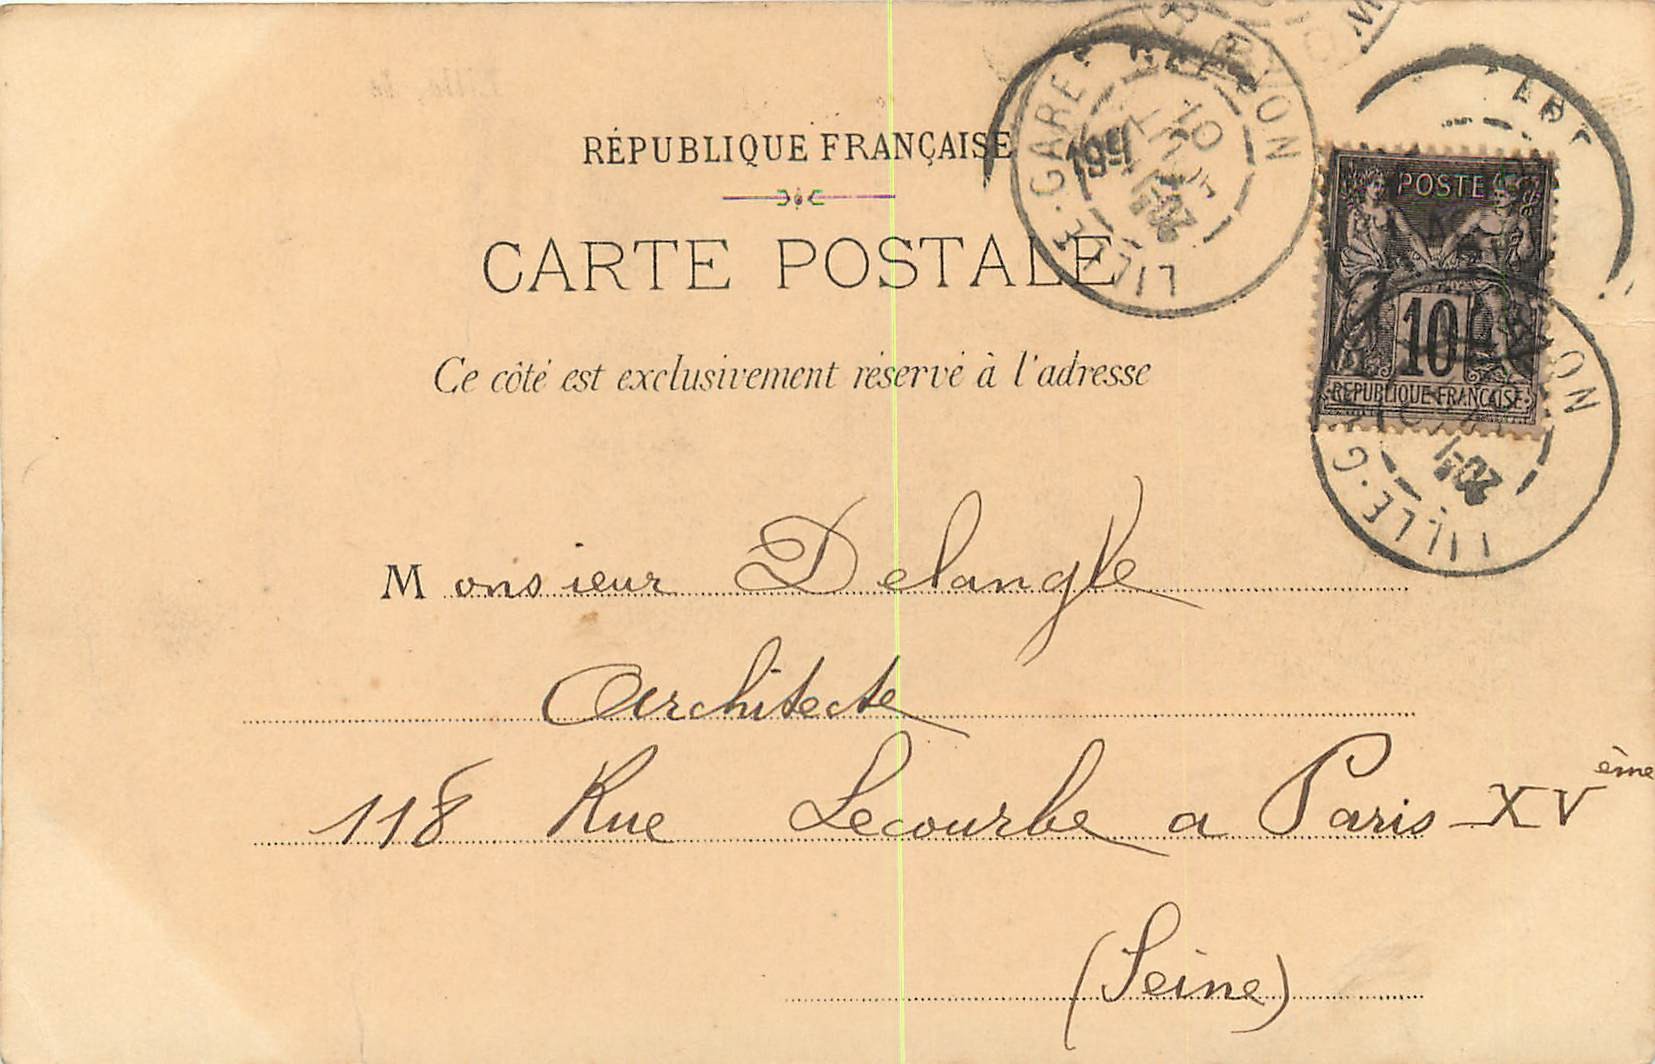 RÉPUBLIQUE FRANÇAISE
CARTE POSTALE
Ce côté est exclusivement réservé à l'adresse
LILLE-GARE
POSTE
10
REPUBLIQUE FRANÇAISE
LILLE-G
Monsieur Delangle
Architecte
118 Rue Lecourbe a Paris XVème
(Seine)